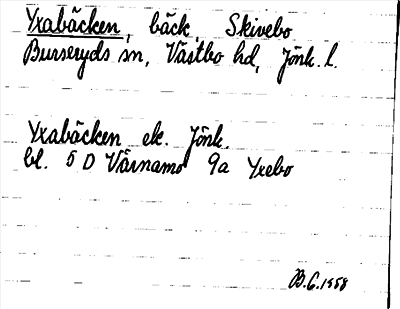 Yxabäcken, bäck, Skivebo
Burseryds sn, Västbo hd, Jönk. l.
Yxabäcken ek. Jönk.
bl. 5 D Värnamo 9a Yxebo
B.G. 1958